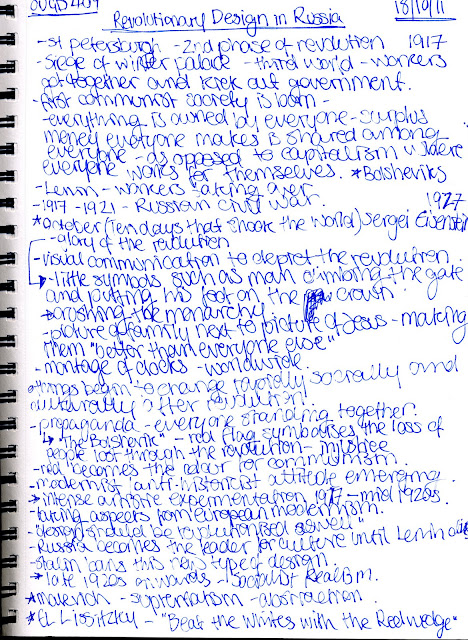 OUGD401
18/10/11
Revolutionary Design in Russia
- st petersburgh - 2nd phase of revolution 1917
- siege of winter palace - third world - workers
got together and kick out government.
- first communist society is born -
- everything is owned by everyone - surplus
money everyone makes is shared among
everyone - as opposed to capitalism where
everyone works for themselves. * Bolsheviks
- Lenin - workers taking over
- 1917 - 1921 - Russian civil war. 1927
* october (Ten days that shook the world) Sergei Eisenstein
- glory of the revolution
- visual communication to depict the revolution.
- little symbols, such as man climbing the gate
and putting his foot on the crown.
- crushing the menarchy
- picture of family next to picture of Jesus - making
them "better than everyone else"
- montage of clocks - worldwide.
things begin to change rapidly socially and
culturally after revolution.
- propaganda - everyone standing together.
"The Bolshevik" - red flag symbolises the loss of
people lost through the revolution -
- red becomes the colour for communism.
- modernist 'anti-historicist' attitude emerging.
* intense artistic experimentation 1917 - mid 1920s.
- taking aspects from european modernism.
- "design should be revolutionised aswell"
- Russia becomes the leader for culture until Lenin dies
- stalin bans this new type of design.
* late 1920s onwards - Socialist Realism.
* malevich - suprematism - abstraction.
* EL Lissitzky - "Beat the Whites with the Red wedge"